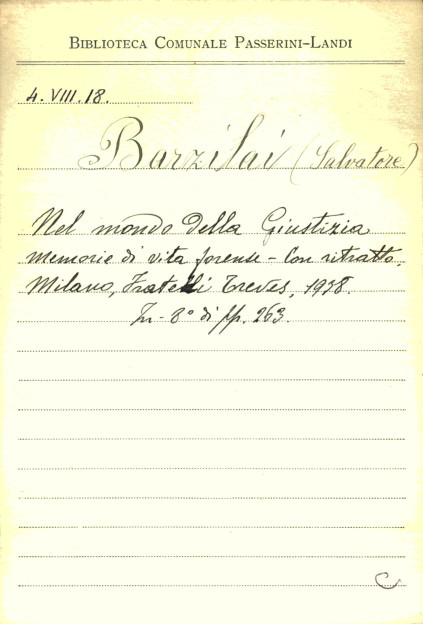 BIBLIOTECA COMUNALE PASSERINI-LANDI
4. VIII. 18.
Barzilai (Salvatore)
Nel mondo della Giustizia
Memorie di vita forense - Con ritratto,
Milano, Fratelli Treves,
In - 8° di pp. 263.
C